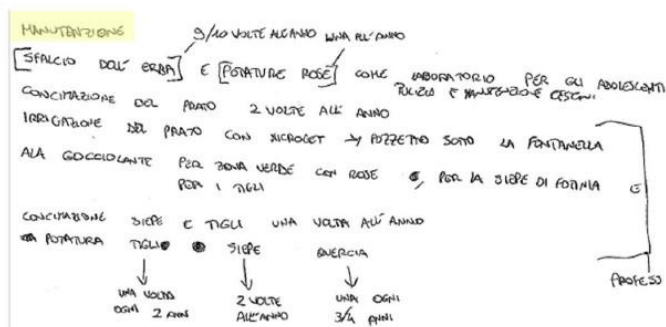 MANUTENZIONE
9/10 VOLTE ALL'ANNO UNA ALL'ANNO
[SFALCIO DELL'ERBA] E [POTATURE ROSE] COME LABORATORIO PER GLI ADOLESCENTI
PULIZIA E MANUTENZIONE CESTINI
CONCIMAZIONE DEL PRATO 2 VOLTE ALL'ANNO
IRRIGAZIONE DEL PRATO CON MICROGET → POZZETTO SOTTO LA FONTANELLA
ALA GOCCIOLANTE PER ZONA VERDE CON ROSE E, PER LA SIEPE DI FOTINIA E
PER I TIGLI
CONCIMAZIONE SIEPE E TIGLI UNA VOLTA ALL'ANNO
POTATURA TIGLIO SIEPE QUERCIA
UNA VOLTA OGNI 2 ANNI
2 VOLTE ALL'ANNO
UNA OGNI 3/4 ANNI
PROFESSO